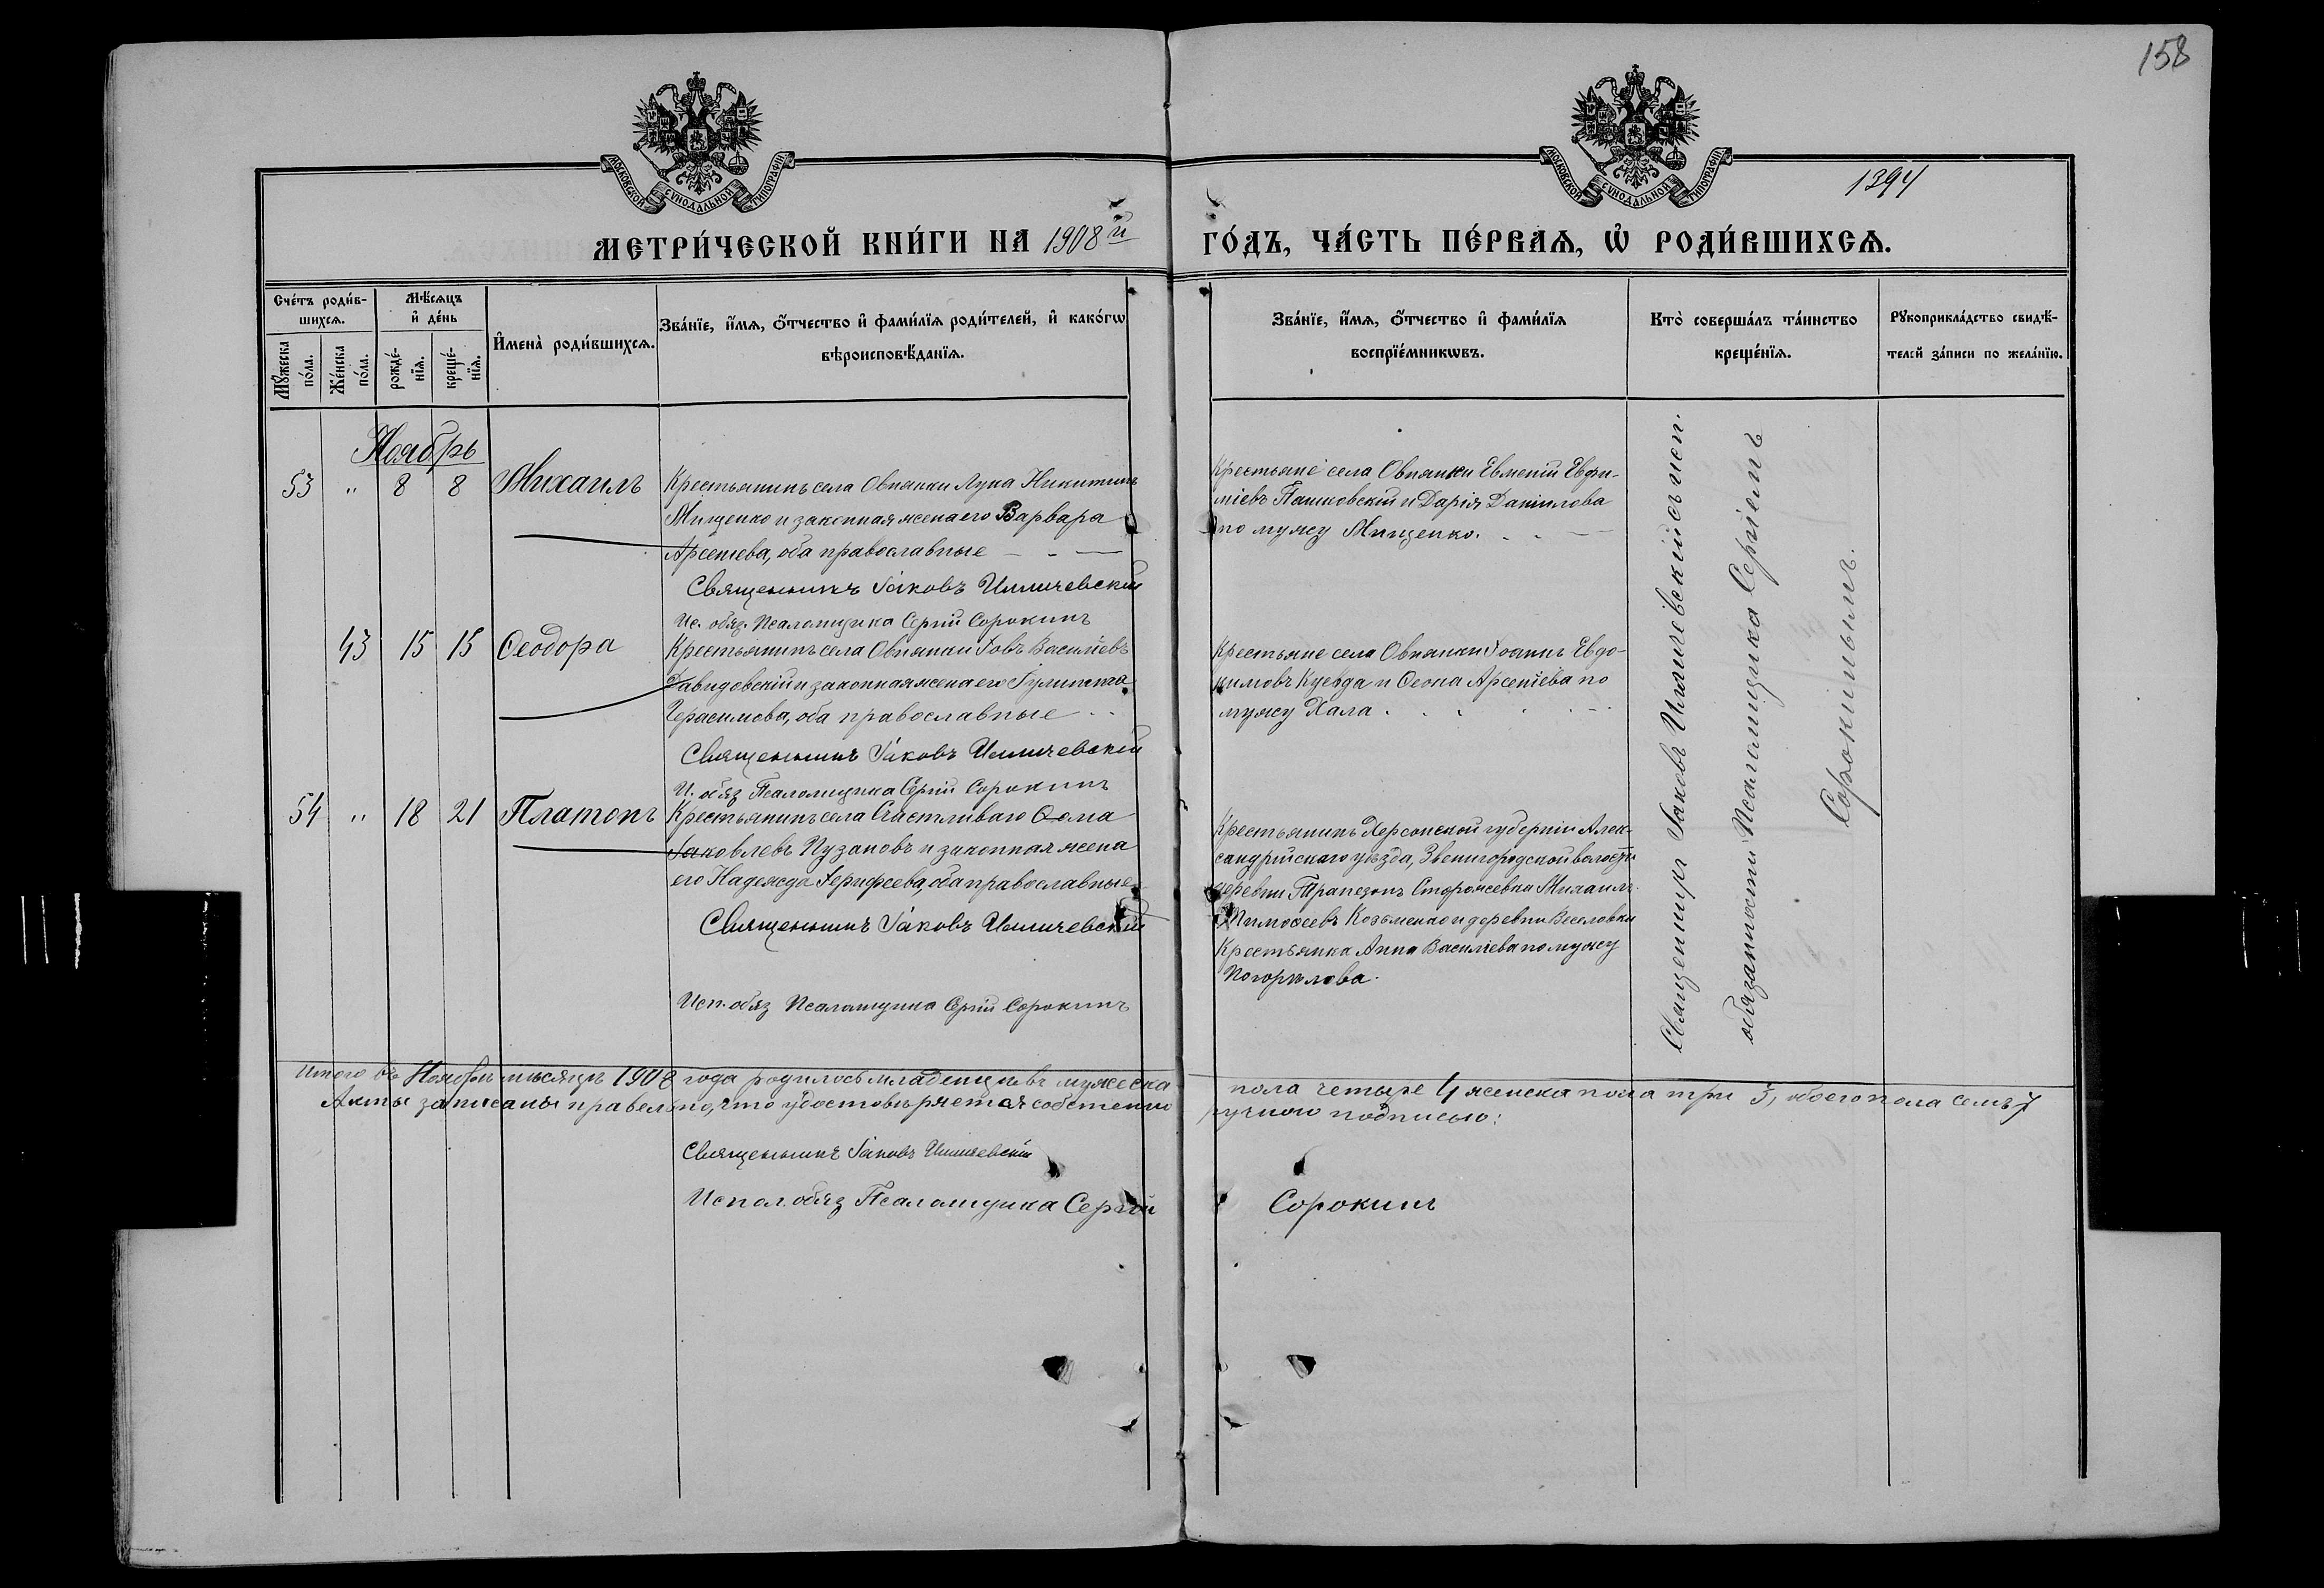 158
МОСКОВСКОЙ СѴНОДАЛЬНОЙ ТИПОГРАФІИ
МОСКОВСКОЙ СѴНОДАЛЬНОЙ ТИПОГРАФІИ
1394
МЕТРИ́ЧЕСКОЙ КНИ́ГИ НА 1908й
ГО́ДЪ, ЧА́СТЬ ПЕ́РВАѦ, Ѡ РОДИ́ВШИХСѦ.
Сче́тъ роди́в-
шихсѧ.
Мꙋ́жеска
по́ла.
Же́нска
по́ла.
Мѣ́сѧцъ
и҆ де́нь
рожде́-
нїѧ.
креще́-
нїѧ.
И҆мена̀ роди́вшихсѧ.
Зва́нїе, и҆́мѧ, ѻ҆́тчество и҆ фами́лїѧ роди́телей, и҆ како́гѡ
вѣроисповѣ́данїѧ.
Зва́нїе, и҆́мѧ, ѻ҆́тчество и҆ фами́лїѧ
воспрїе́мникѡвъ.
Кто̀ соверша́лъ та́инство
креще́нїѧ.
Рꙋкоприкла́дство свидѣ́-
телей за́писи по жела́нїю.
Ноябрь
53 " 8 8 Михаилъ
Крестьянинъ села Овнянки Лука Никитинъ
Мищенко и законная жена его Варвара
Арсенiева, оба православные
Священникъ Iаковъ Илличевскiй
Ис. обяз. Псаломщика Сергiй Сорокинъ
Крестьяне села Овнянки Евменiй Евфи-
мiевъ Пашковскiй и Дарiя Данiилова
по мужу Мищенко.
43 15 15 Ѳеодора
Крестьянинъ села Овнянки Iовъ Василiевъ
Давидовскiй и законная жена его Iулиттiа
Герасимова, оба православные
Священникъ Iаковъ Илличевскiй
И. обяз Псаломщика Сергiй Сорокинъ
Крестьяне села Овнянки Iоаннъ Евдо-
кимовъ Куевда и Ѳеона Арсенiева по
мужу Хала.
54 " 18 21 Платонъ
Крестьянинъ села Счастливаго Ѳома
Iаковлевъ Пузановъ и законная жена
его Надежда Iерифеева, оба православные
Священникъ Iаковъ Илличевскiй
Исп. обяз Псаломщика Сергiй Сорокинъ
Крестьянинъ Херсонской губернiи Алек-
сандрiйскаго уѣзда, Звенигородской волости
деревни Трапезонъ Сторожевка Михаилъ
Тимоѳеевъ Козьменко и деревни Веселовки
Крестьянка Анна Василiева по мужу
Погорѣлова.
Священникъ Iаковъ Илличевскiй съ исп.
обязанности Псаломщика Сергiемъ
Сорокинымъ.
Итого въ Ноябрѣ мѣсяцѣ 1908 года родилось младенцевъ мужеска
пола четыре 4 женска пола три 3, обоего пола семь 7
Акты записаны правельно, что удостовѣряется собственно
ручною подписью:
Священникъ Iаковъ Илличевскiй
Испол. обяз Псаломщика Сергiй
Сорокинъ